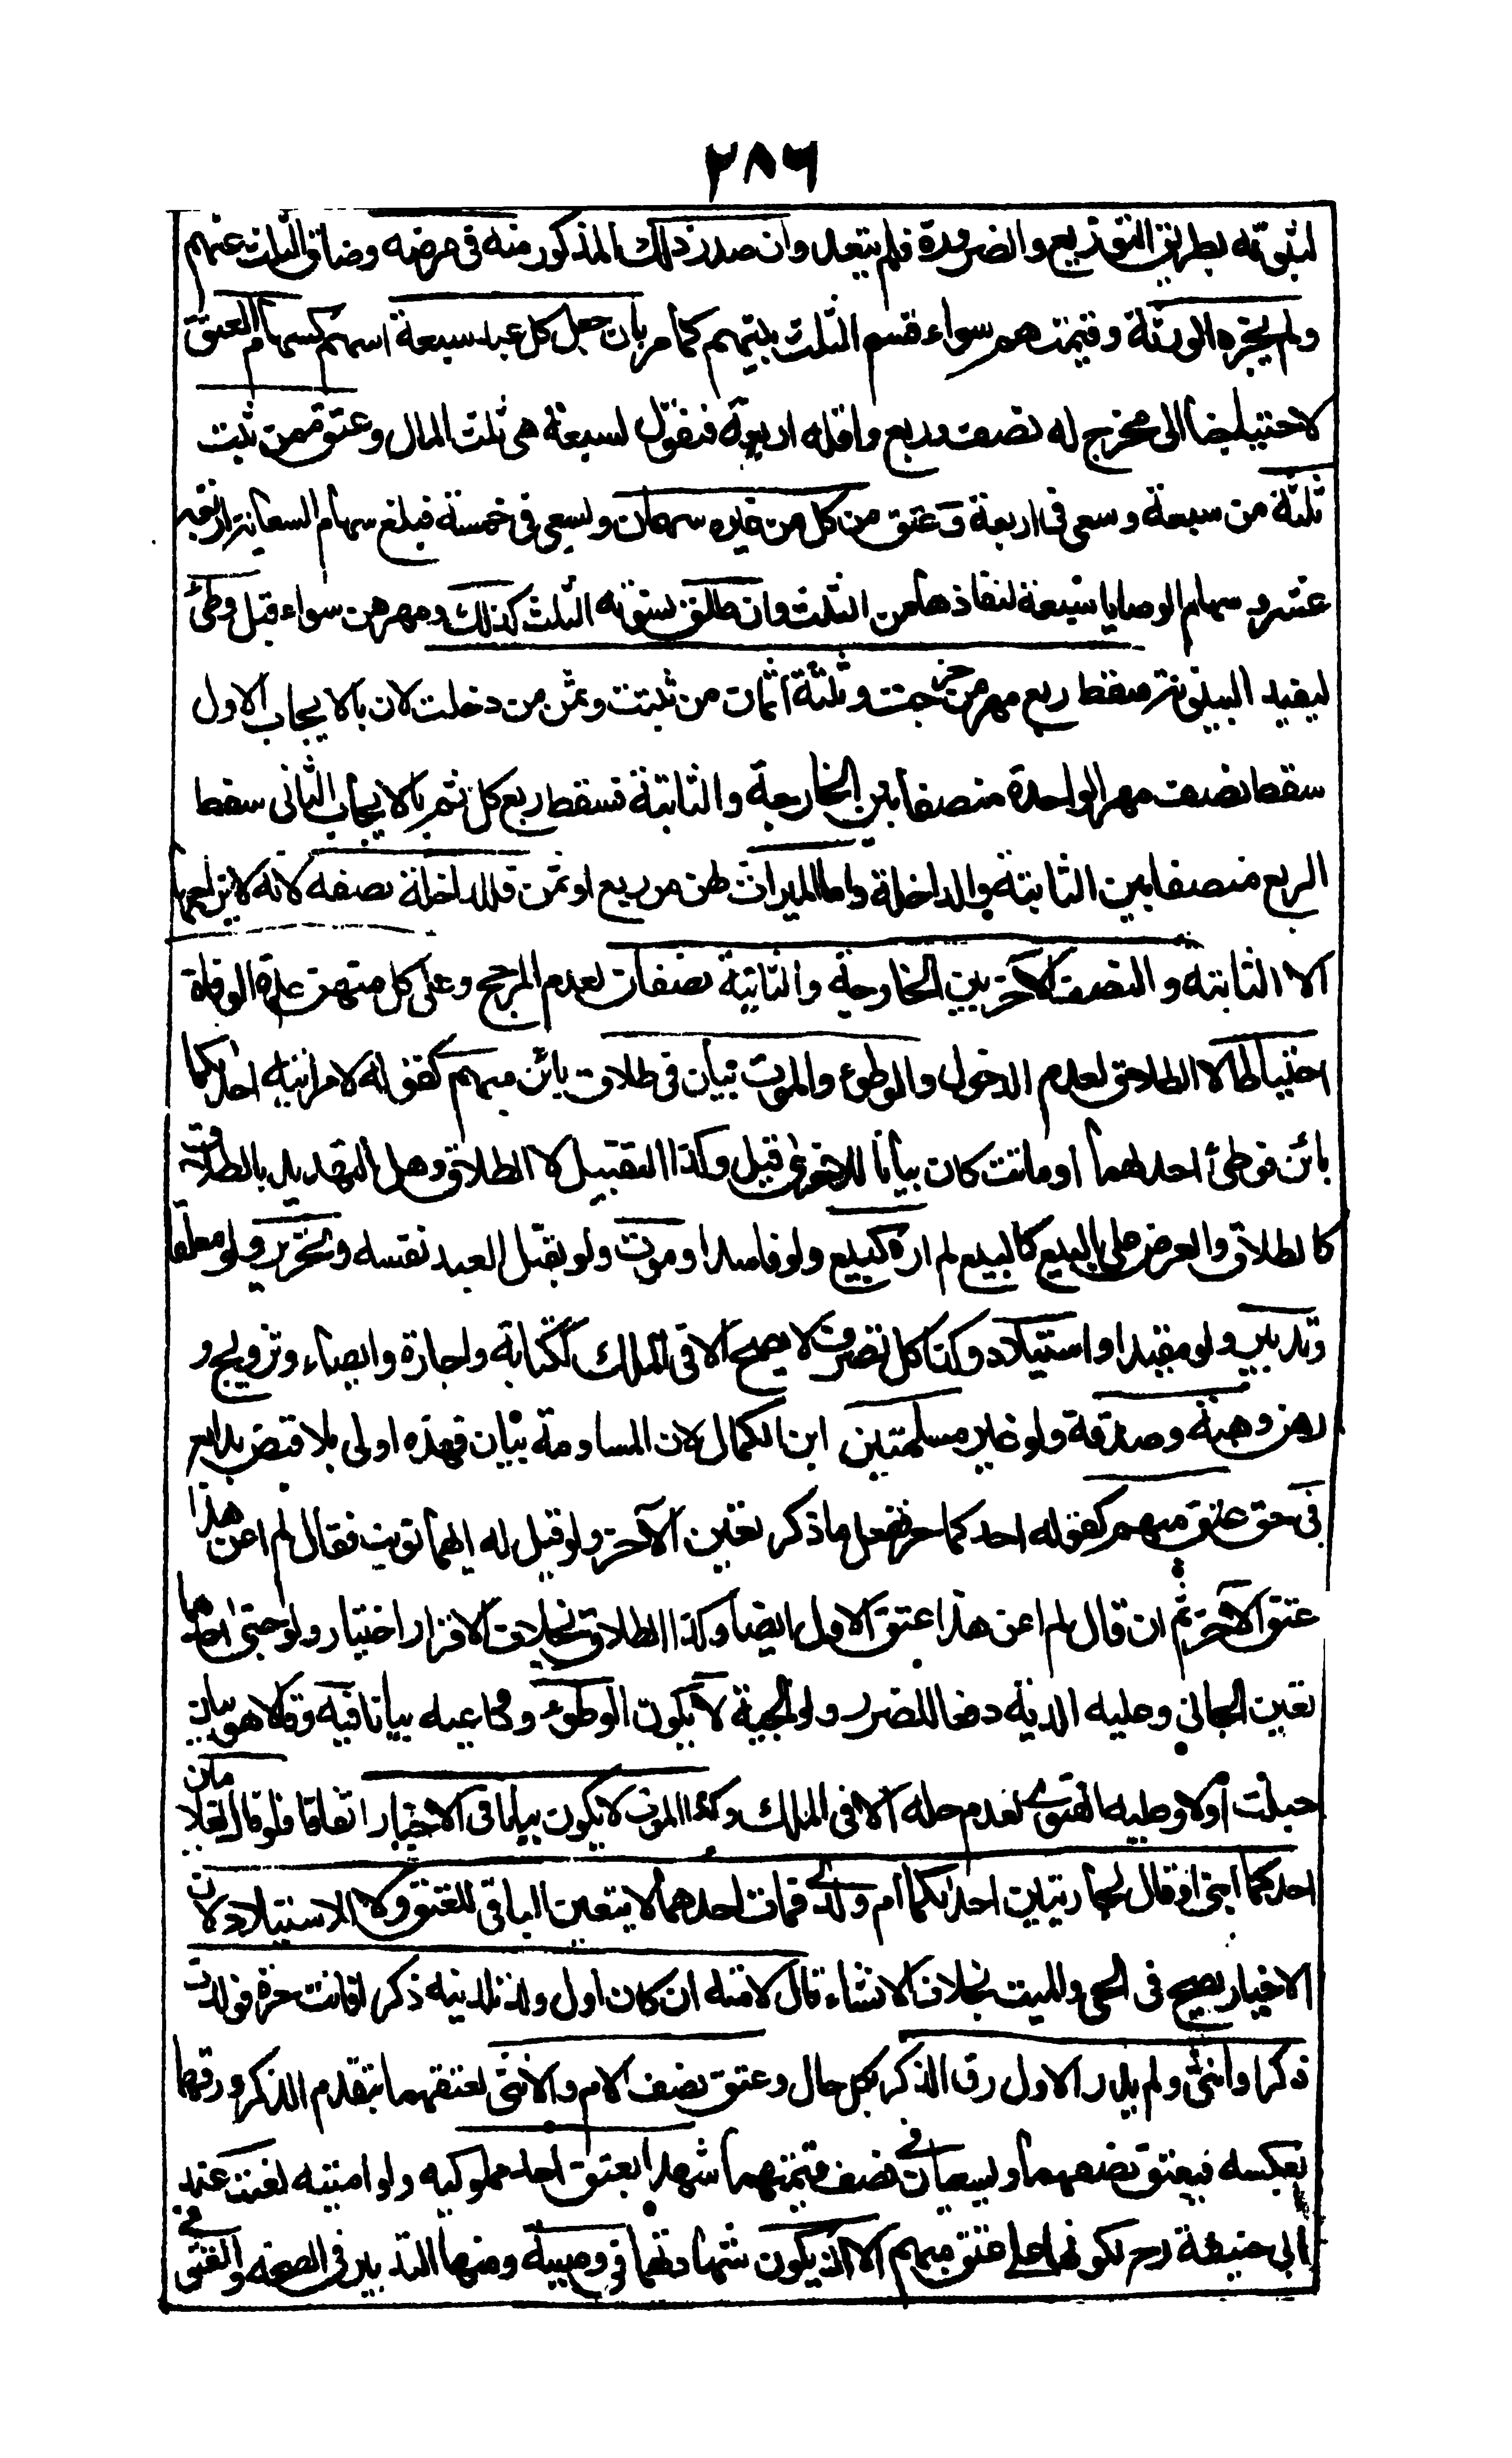 ٢٨٦
لثبوته بطريق التوزيع والضرورة فلم يتعد وان صدر ذلك المذكور منه في مرضه وضاق الثلث عنهم
ولم يجزه الورثة وقيمتهم سواء قسم الثلث بينهم كما مر بان جعل كل عبد سبعة اسهم كسهام العتق
لاحتياجنا الى مخرج له نصف وربع واقله اربعة فنقول لسبعة هي ثلث المال وعتق ممن ثبت
ثلثة من سبعة وسعى في اربعة وعتق من كل من غيره سهمان وسعى في خمسة فبلغ سهام السعاية اربعة
عشر وسهام الوصايا سبعة لنفاذها من الثلث وان طلق نسوته الثلث كذلك ومهرهن سواء قبل وطئ
ليفيد البينونة سقط ربع مهر من خرجت وثلثة اثمان من ثبتت وثمن من دخلت لان بالايجاب الاول
سقط نصف مهر الواحدة منصفا بين الخارجة والثابتة فسقط ربع كل ثم بالايجاب الثاني سقط
الربع منصفا بين الثابتة والداخلة واما الميراث لهن من ربع او ثمن فللداخلة نصفه لانه لا يزاحمها
الا الثابتة والنصف الآخر بين الخارجة والثابتة نصفان لعدم المرجح وعلى كل منهن عدة الوفاة
احتياطا لا الطلاق لعدم الدخول والوطوء والموت بيان في طلاق بائن مبهم كقوله لامرأتيه احداكما
بائن فوطئ احدهما او ماتت كان بيانا للاخرى قيل وكذا التقبيل لا الطلاق وهل التهديد بالطلاق
كالطلاق والعرض على البيع كالبيع لم اره كبيع ولو فاسدا وموت ولو بقتل العبد نفسه وتحرير ولو معلقا
وتدبير ولو مقيدا واستيلاد وكذا كل تصرف لا يصح الا في الملك ككتابة واجارة وايصاء وتزويج و
رهن وهبة وصدقة ولو غير مسلمتين ابن الكمال لان المساومة بيان فهذه اولى بلا قبض بدايع
في حق عتق مبهم كقوله احدكما حر ففعل ما ذكر تعين الآخر ولو قيل له ايهما نويت فقال لم اعن هذا
عتق الآخر ثم ان قال لم اعن هذا عتق الاول ايضا وكذا الطلاق بخلاف الاقرار اختيار ولو جنى احدهما
تعين الجاني وعليه الدية دفعا للضرر ولوالجية لا يكون الوطوء ودواعيه بيانا فيه وقالا هو بيان
حبلت أولا وعليه الفتوى لعدم حله الا في الملك وكذا الموت لا يكون بيانا في الاخبار اتفاقا فلو قال لغلامان
احدكما ابني او قال لجاريتين احداكما أم ولدي فمات احدهما لا يتعين الباقي للعتق ولا الاستيلاد لان
الاخبار يصح في الحي والميت بخلاف الانشاء قال لامته ان كان اول ولد تلدينه ذكرا فانت حرة فولدت
ذكرا وانثى ولم يدر الاول رق الذكر بكل حال وعتق نصف الام والانثى لعتقهما بتقدم الذكر ورقهما
بعكسه فيعتق نصفهما ويسعيان في نصف قيمتهما شهدا بعتق احد مملوكيه ولو امتيه لغت عند
ابي حنيفة رح لكونها على عتق مبهم الا ان يكون شهادتهما في وصية ومنها التدبير في الصحة والعتق في